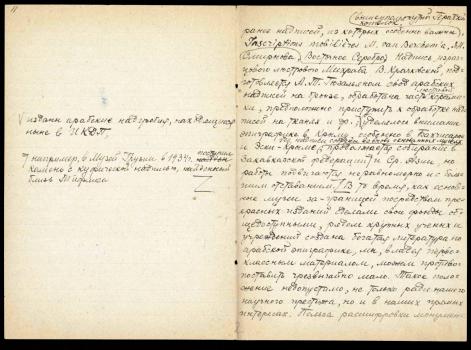 изданы арабские надгробия, находящиеся
ныне в ИКДП,
например, в Музей Грузии в 1934 г. поступил
камень с куфической надписью, найденный
близ Тифлиса
ранее надписей, из которых особенно важны
Inscriptions mobilières M. van Berchem'а, Я.И.
Смирнова, Восточное Серебро, Надпись, израз-
цового люстрового Михраба В. Крачковской, под-
готовляется М.Т. свод арабских
надписей на бронзе, обработана часть керами-
ки, предположено приступить к обработке над-
писей на тканях и др. Уделялось внимание
эпиграфике в Крыму, особенно в Бахчисарае
и Эски-Крыме, продолжается собирание в
Закавказской федерации и Ср. Азии, но
работа подвигается неравномерно и с боль-
шим отставанием. В то время, как основ-
ные музеи за-границей посредством пре-
красных изданий сделали свои фонды об-
щедоступными, рядом крупных ученых и
учреждений создана богатая литература по
арабской эпиграфике, мы, владея перво-
классным материалом, можем противо-
поставить чрезвычайно мало. Такое поло-
жение недопустимо, не только ради нашего
научного престижа, но и в наших прямых
интересах. Польза расшифровки монумент